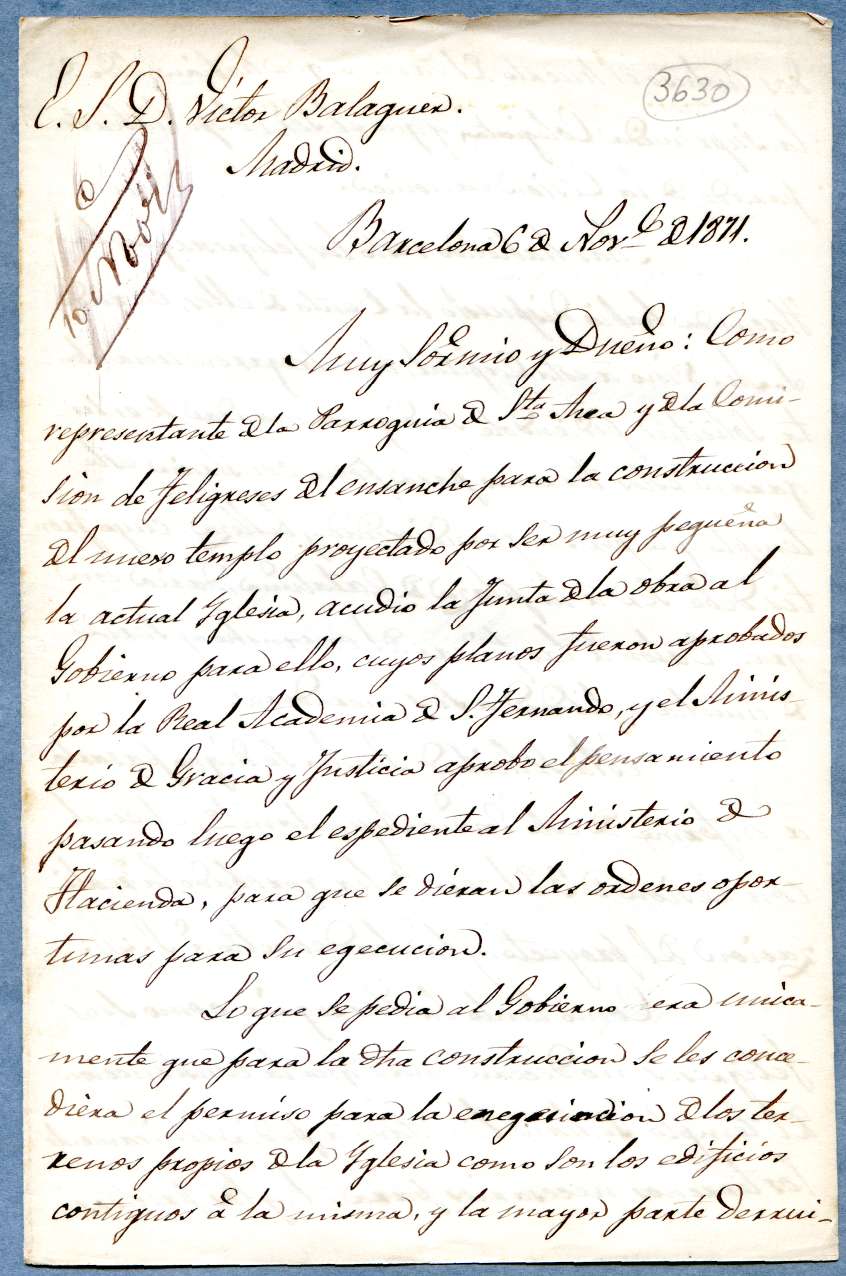 3630
E. S. D. Victor Balaguer.
Madrid.
10 Nov
Barcelona 6 de Nov.e de 1871.
Muy Sor mio y Dueño: Como
representante de la Parroquia de Sta Ana y de la Comi-
sion de Feligreses del ensanche para la construccion
del nuevo templo proyectado por ser muy pequeña
la actual Yglesia, acudio la Junta de la obra al
Gobierno para ello, cuyos planos fueron aprobados
por la Real Academia de S. Fernando, y el Minis-
terio de Gracia y Justicia aprobo el pensamiento
pasando luego el espediente al Ministerio de
Hacienda, para que se diéran las ordenes opor-
tunas para su egecucion.
Lo que se pedia al Gobierno era unica-
mente que para la dha construccion se les conce-
diéra el permiso para la de los ter-
renos propios de la Yglesia como son los edificios
contiguos á la misma, y la mayor parte derrui-